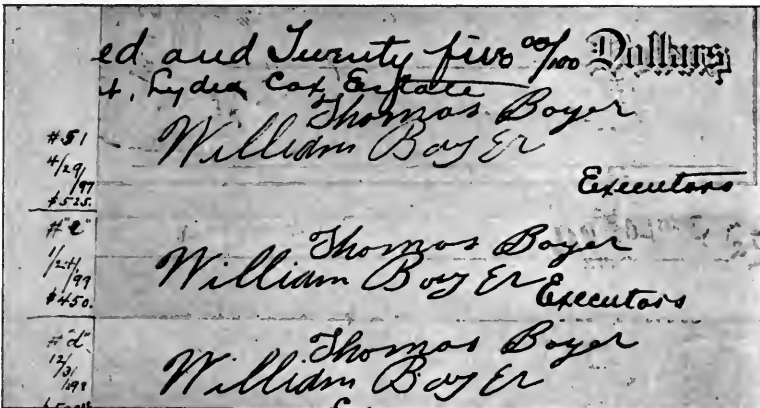 ed and Twenty five 00/100 Dollars
t, Lydia Cox Estate
Thomas Boyer
William Boy Er
Executors
#51
4/29/97
$525.
Thomas Boyer
William Boy Er
Executors
#"e"
1/24/99
$450.
Thomas Boyer
William Boy Er
#"d"
12/31/98